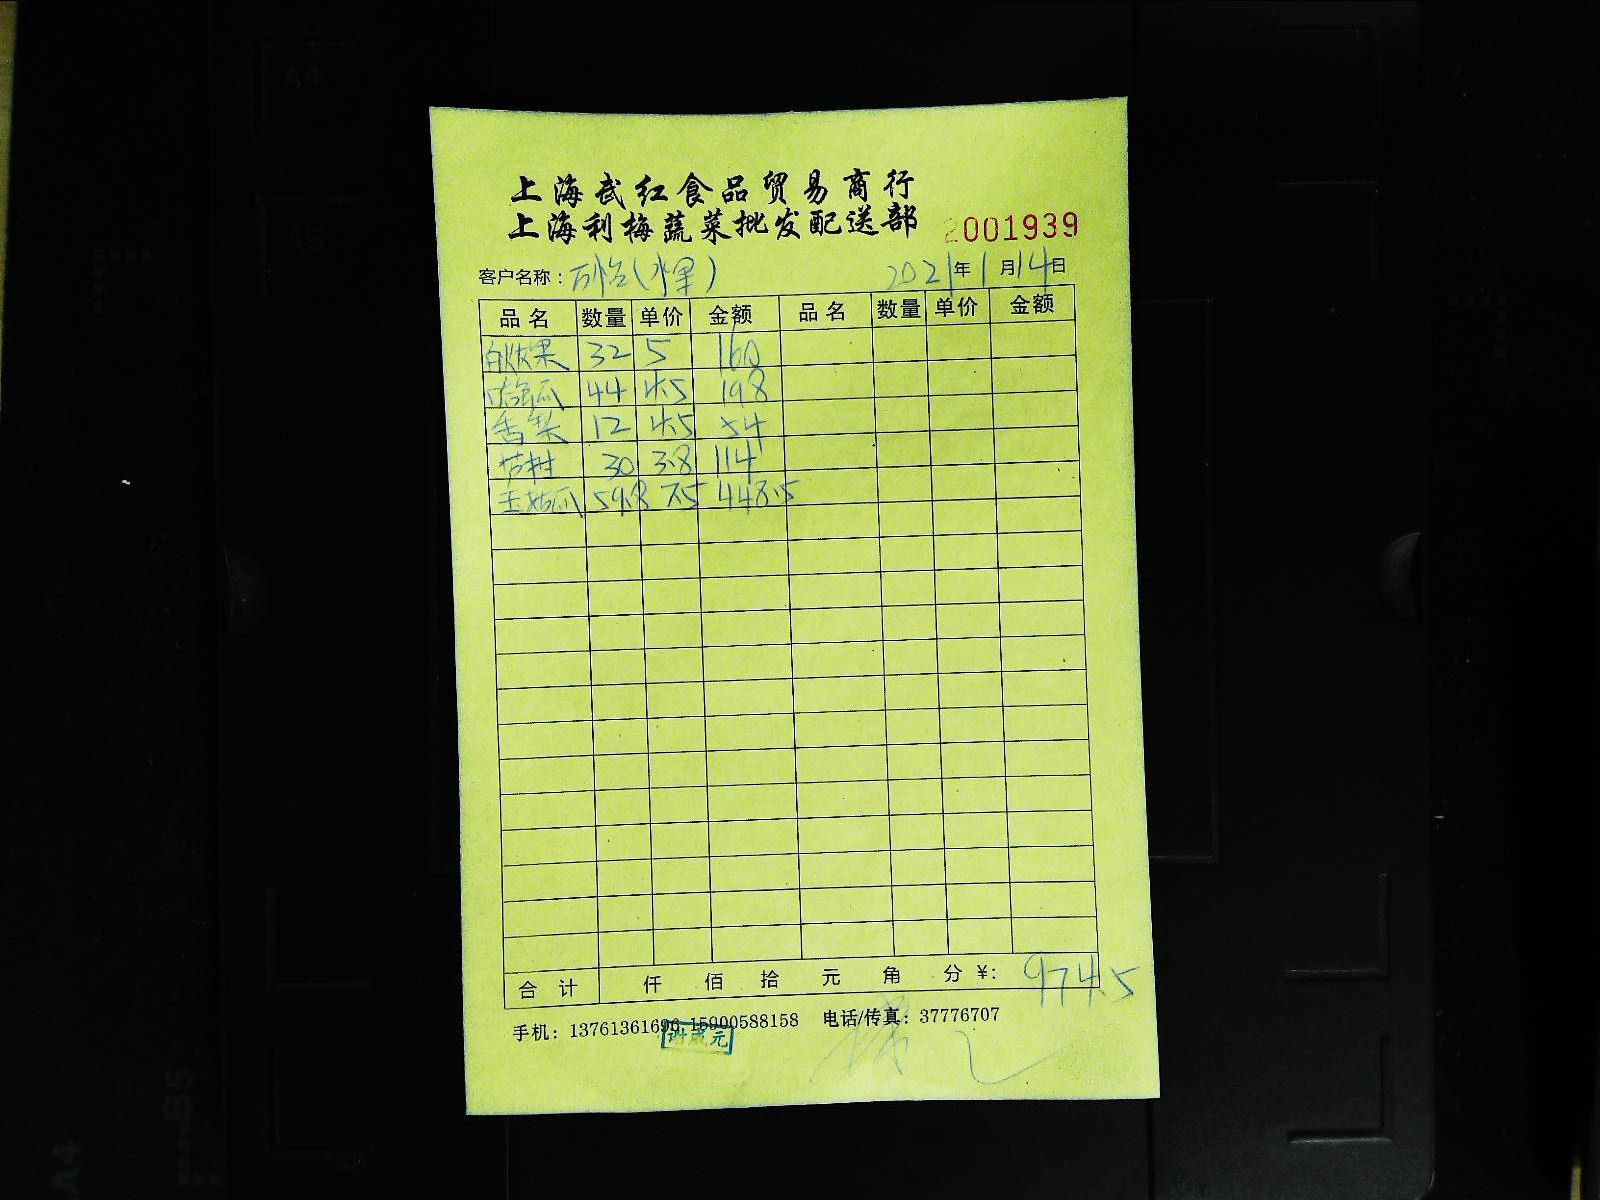 上海武红食品贸易商行
上海利梅蔬菜批发配送部 2001939
客户名称：(水果) 2021年1月14日
品名 数量 单价 金额 品名 数量 单价 金额
32 5 160
哈密瓜 44 4.5 198
香梨 12 4.5 54
30 3.8 114
玉菇瓜 59.8 7.5 448.5
合计 仟 佰 拾 元 角 分 ¥: 974.5
手机：13761361696 15900588158 电话/传真：37776707
谢成元
A4
A5
B5
A4